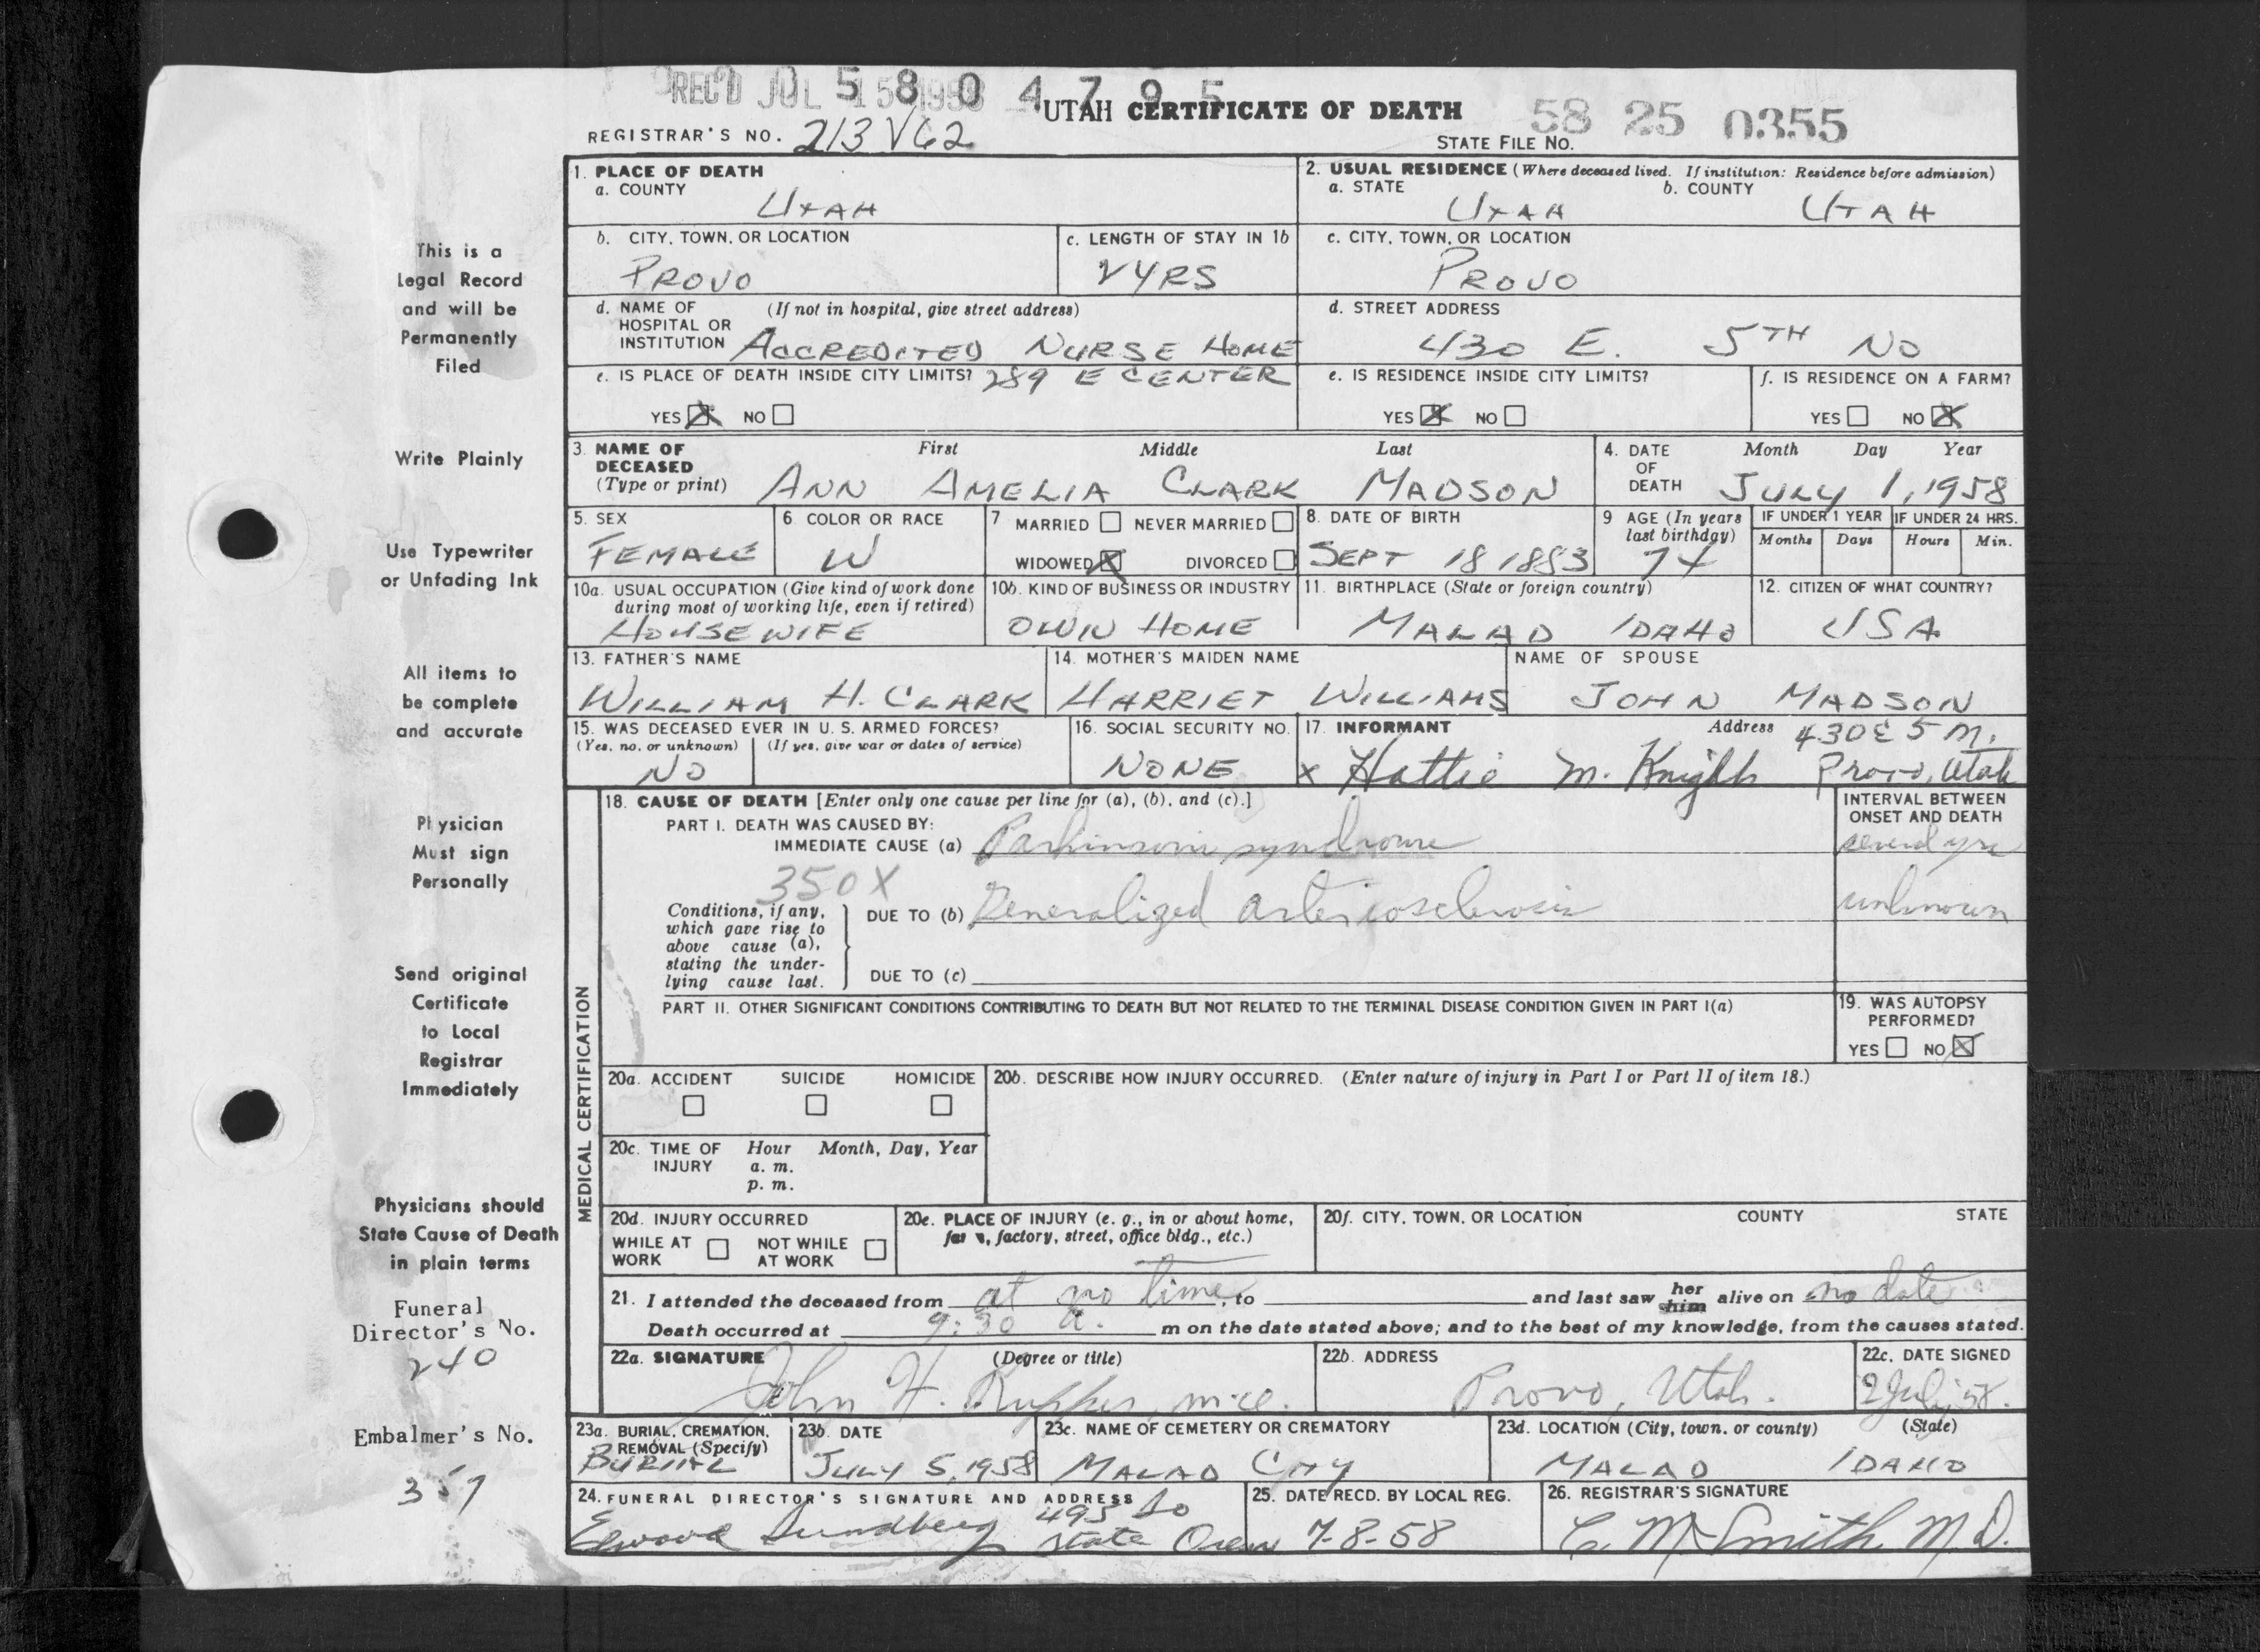 REC'D JUL 15 1958
5 8 0 4 7 9 5
UTAH CERTIFICATE OF DEATH
58 25 0355
REGISTRAR'S NO. 213 V62
STATE FILE NO.
1. PLACE OF DEATH
a. COUNTY
UTAH
2. USUAL RESIDENCE (Where deceased lived. If institution: Residence before admission)
a. STATE b. COUNTY
UTAH UTAH
b. CITY, TOWN, OR LOCATION
PROVO
c. LENGTH OF STAY IN 1b
2 YRS
c. CITY, TOWN, OR LOCATION
PROVO
d. NAME OF (If not in hospital, give street address)
HOSPITAL OR
INSTITUTION ACCREDITED NURSE HOME
d. STREET ADDRESS
430 E. 5TH NO
e. IS PLACE OF DEATH INSIDE CITY LIMITS? 289 E CENTER
YES X NO
e. IS RESIDENCE INSIDE CITY LIMITS?
YES X NO
f. IS RESIDENCE ON A FARM?
YES NO X
3. NAME OF DECEASED (Type or print)
First Middle Last
ANN AMELIA CLARK MADSON
4. DATE OF DEATH
Month Day Year
JULY 1, 1958
5. SEX
FEMALE
6. COLOR OR RACE
W
7 MARRIED NEVER MARRIED
WIDOWED X DIVORCED
8. DATE OF BIRTH
SEPT 18 1883
9 AGE (In years last birthday)
74
IF UNDER 1 YEAR
Months Days
IF UNDER 24 HRS.
Hours Min.
10a. USUAL OCCUPATION (Give kind of work done during most of working life, even if retired)
HOUSEWIFE
10b. KIND OF BUSINESS OR INDUSTRY
OWN HOME
11. BIRTHPLACE (State or foreign country)
MALAD IDAHO
12. CITIZEN OF WHAT COUNTRY?
USA
13. FATHER'S NAME
WILLIAM H. CLARK
14. MOTHER'S MAIDEN NAME
HARRIET WILLIAMS
NAME OF SPOUSE
JOHN MADSON
15. WAS DECEASED EVER IN U. S. ARMED FORCES?
(Yes, no, or unknown) (If yes, give war or dates of service)
NO
16. SOCIAL SECURITY NO.
NONE
17. INFORMANT Address 430 E 5 N.
x Hattie M. Knight Provo, Utah
MEDICAL CERTIFICATION
18. CAUSE OF DEATH [Enter only one cause per line for (a), (b), and (c).]
PART I. DEATH WAS CAUSED BY:
IMMEDIATE CAUSE (a) Parkinsons syndrome
INTERVAL BETWEEN ONSET AND DEATH
several yrs
350X
Conditions, if any, which gave rise to above cause (a), stating the underlying cause last.
DUE TO (b) Generalized arteriosclerosis
unknown
DUE TO (c)
PART II. OTHER SIGNIFICANT CONDITIONS CONTRIBUTING TO DEATH BUT NOT RELATED TO THE TERMINAL DISEASE CONDITION GIVEN IN PART I(a)
19. WAS AUTOPSY PERFORMED?
YES NO X
20a. ACCIDENT SUICIDE HOMICIDE
20b. DESCRIBE HOW INJURY OCCURRED. (Enter nature of injury in Part I or Part II of item 18.)
20c. TIME OF INJURY
Hour Month, Day, Year
a. m.
p. m.
20d. INJURY OCCURRED
WHILE AT WORK NOT WHILE AT WORK
20e. PLACE OF INJURY (e. g., in or about home, farm, factory, street, office bldg., etc.)
20f. CITY, TOWN, OR LOCATION COUNTY STATE
21. I attended the deceased from at no time, to and last saw her him alive on no date
Death occurred at 9:30 a. m on the date stated above; and to the best of my knowledge, from the causes stated.
22a. SIGNATURE (Degree or title)
John H. Rupper, M.D.
22b. ADDRESS
Provo, Utah.
22c. DATE SIGNED
2 July 58.
23a. BURIAL, CREMATION, REMOVAL (Specify)
BURIAL
23b. DATE
JULY 5, 1958
23c. NAME OF CEMETERY OR CREMATORY
MALAD CITY
23d. LOCATION (City, town, or county) (State)
MALAD IDAHO
24. FUNERAL DIRECTOR'S SIGNATURE AND ADDRESS
Elwood Sundberg 495 So State Orem
25. DATE RECD. BY LOCAL REG.
7-8-58
26. REGISTRAR'S SIGNATURE
C. M. Smith M.D.
This is a
Legal Record
and will be
Permanently
Filed
Write Plainly
Use Typewriter
or Unfading Ink
All items to
be complete
and accurate
Physician
Must sign
Personally
Send original
Certificate
to Local
Registrar
Immediately
Physicians should
State Cause of Death
in plain terms
Funeral
Director's No.
240
Embalmer's No.
357